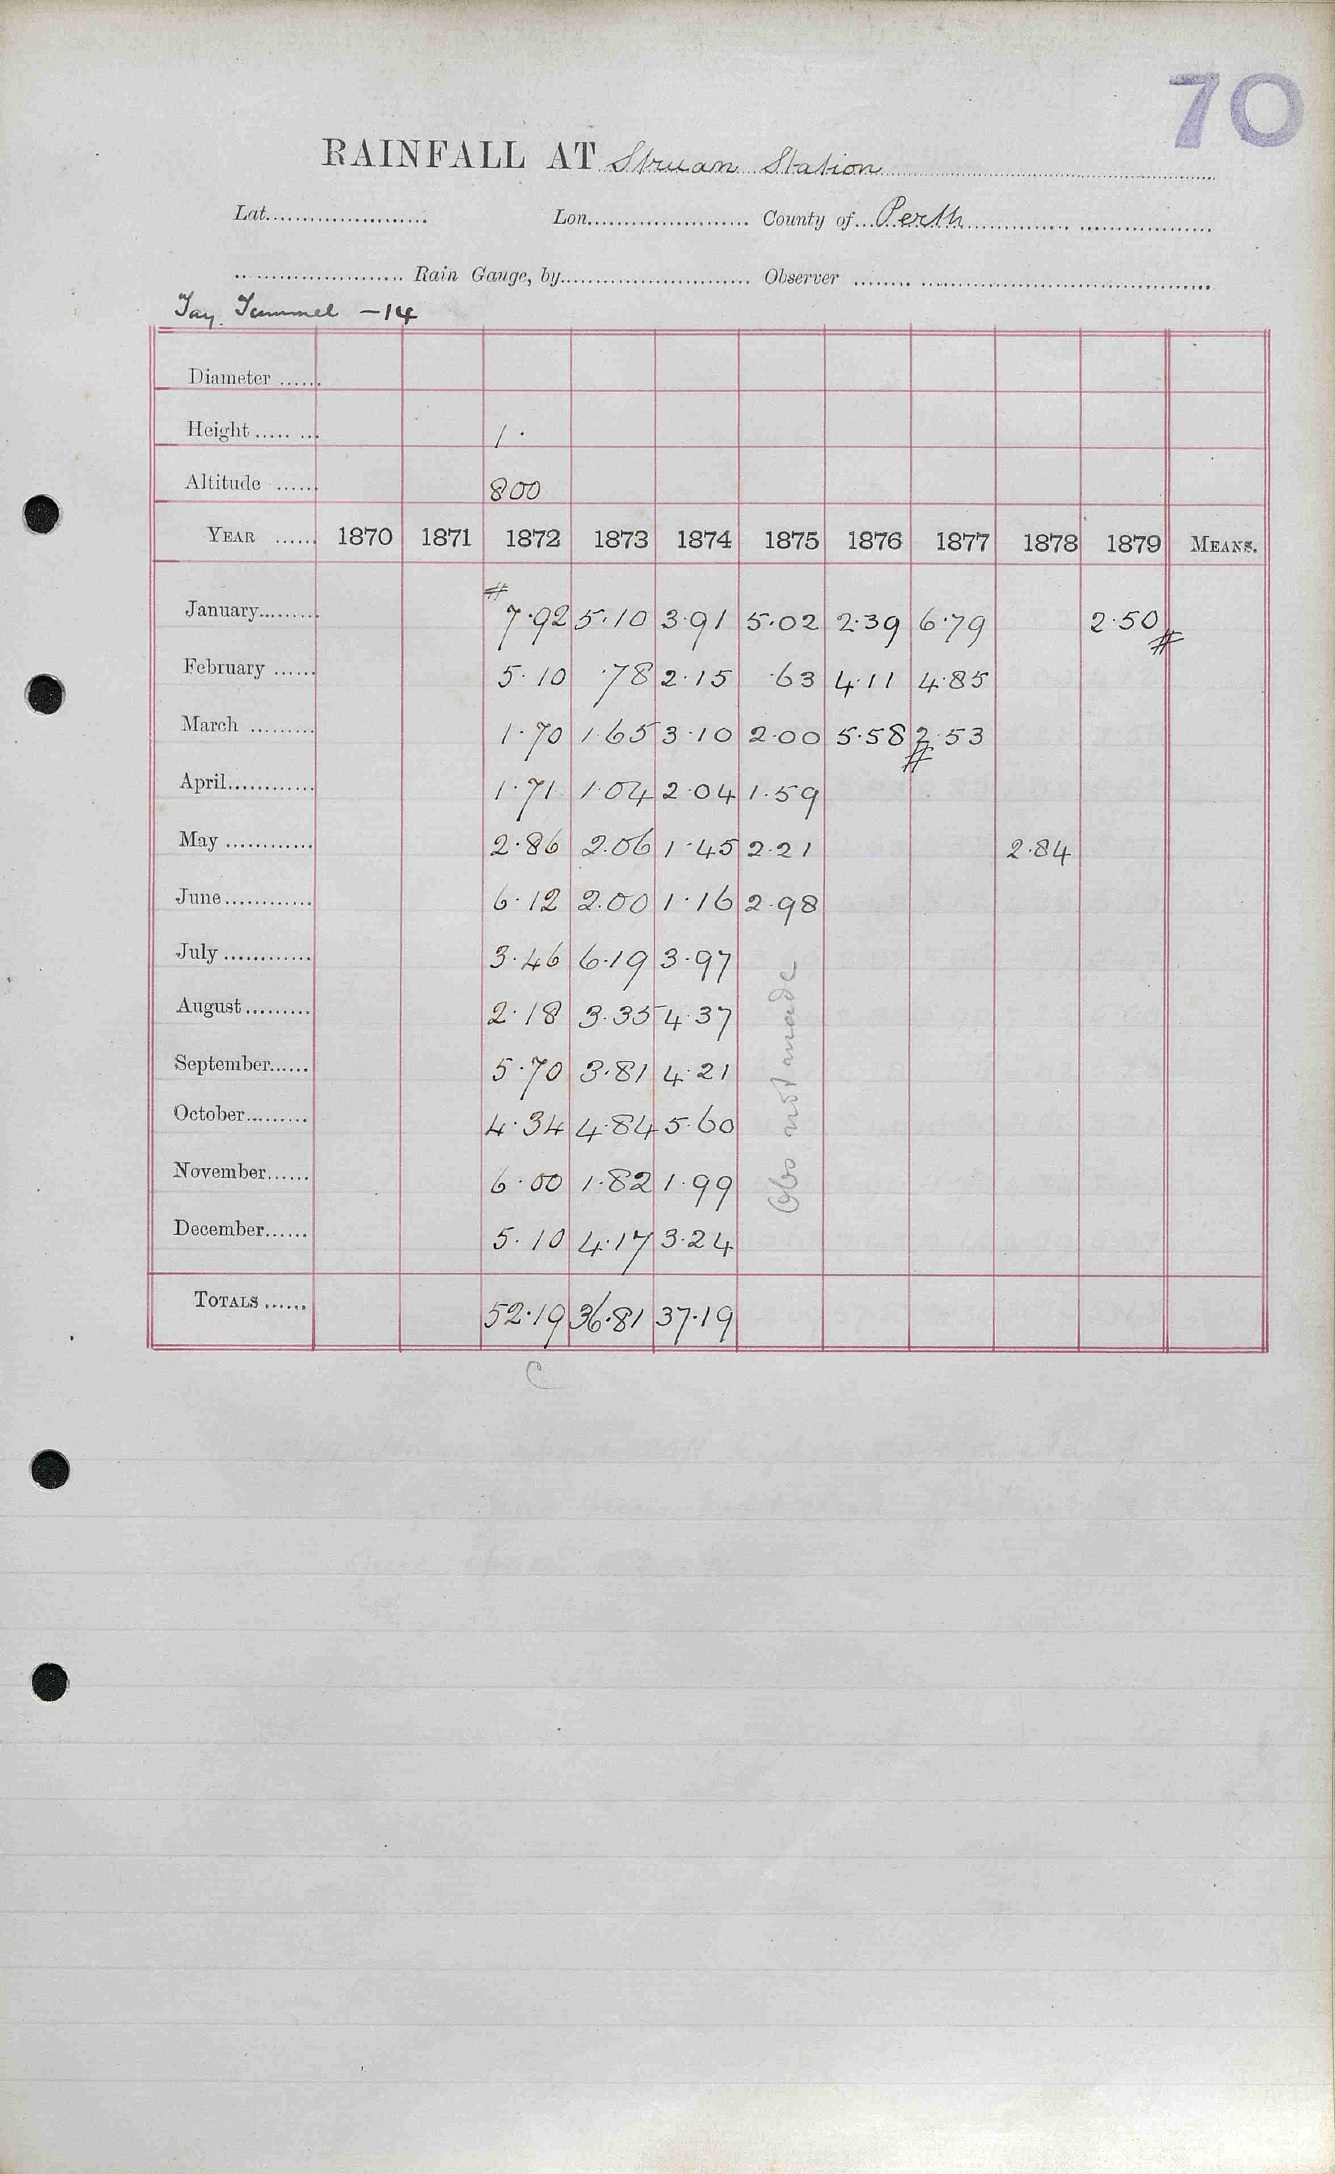 70
RAINFALL AT Struan Station
Lat...................... Lon...................... County of... Perth
...................... Rain Gauge, by.......................... Observer ........
Tay. Tummel – 14
Diameter ......
Height ........ 1 ·
Altitude ...... 800
YEAR ...... 1870 1871 1872 1873 1874 1875 1876 1877 1878 1879 MEANS.
#
January......... 7·92 5·10 3·91 5·02 2·39 6·79 2·50 #
February ...... 5·10 ·78 2·15 ·63 4·11 4·85
March ......... 1·70 1·65 3·10 2·00 5·58 2·53 #
April............ 1·71 1·04 2·04 1·59
May ............ 2·86 2.06 1·45 2·21 2·84
June............ 6·12 2.00 1·16 2·98
July ............ 3·46 6·19 3·97
August......... 2·18 3.35 4·37
September...... 5·70 3·81 4·21
October......... 4·34 4·84 5·60
November...... 6·00 1·82 1·99
December...... 5·10 4·17 3·24
Obs not made
TOTALS ...... 52·19 36·81 37·19
C